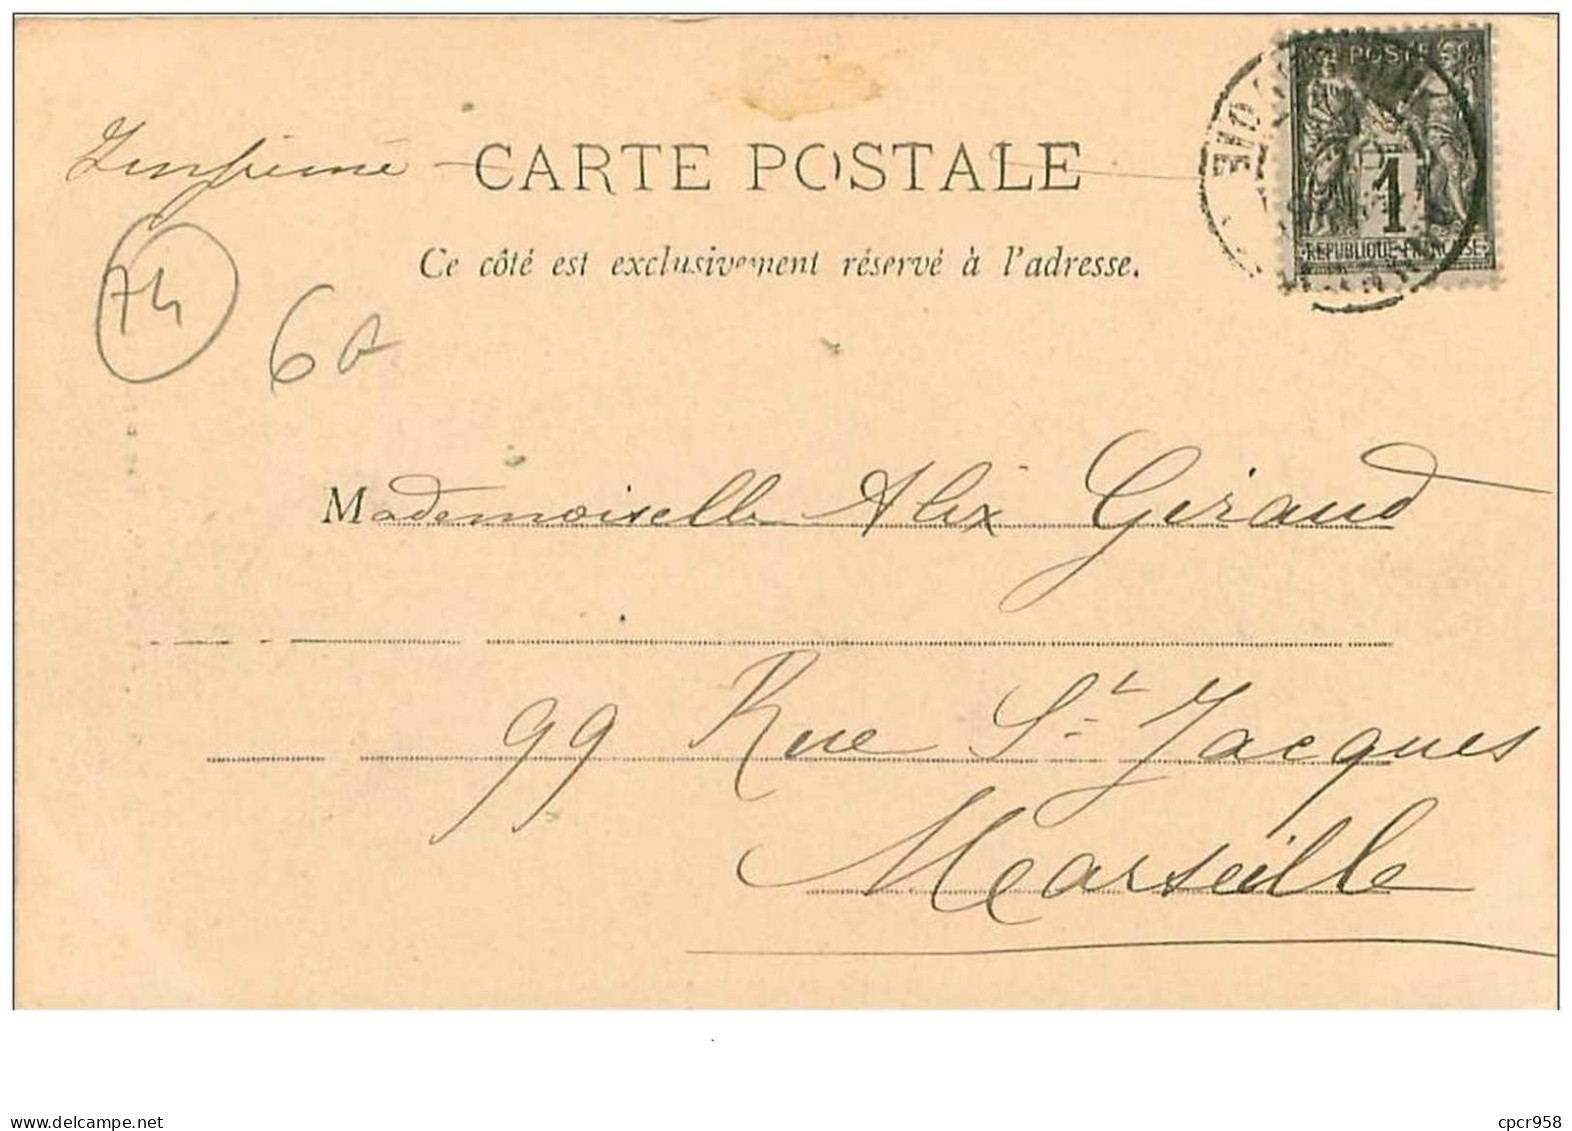 Imprimé
CARTE POSTALE
Ce côté est exclusivement réservé à l'adresse.
POSTE
1
REPUBLIQUE FRANÇAISE
74
6
Mademoiselle Alix Géraud
99 Rue St. Jacques
Marseille
www.delcampe.net
cpcr958